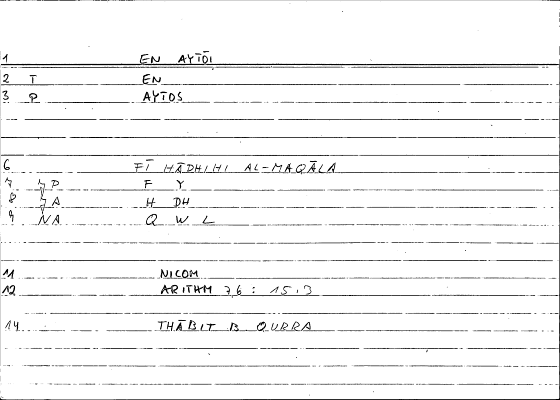 1 EN AYTŌI
2 T EN
3 P AYTOS
6 FĪ HĀDHIHI AL-MAQĀLA
7 P F Y
8 A H DH
9 NA Q W L
11 NICOM
12 ARITHM 76 : 15.3
14 THĀBIT B QURRA